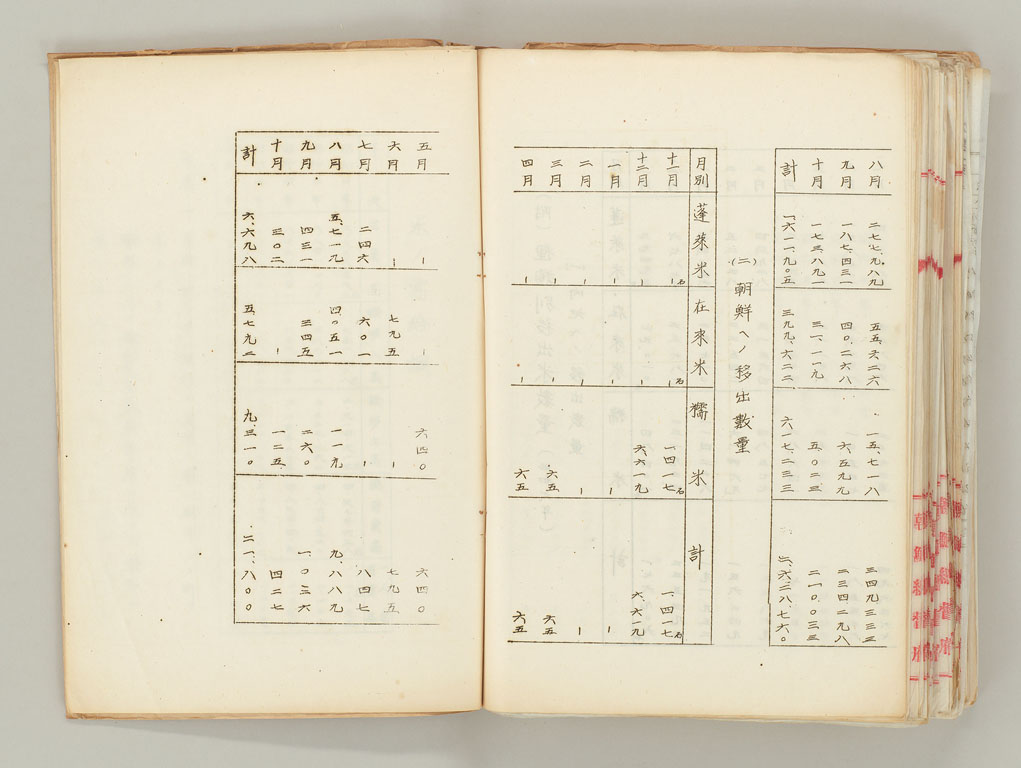 八月 二七七、九八九 五五、六二六 一五、七一八 三四九三三三
九月 一八七、四三一 四〇、二六八 六、五九九 二三四二九八
十月 一七三八九一 三一、一一九 五、〇二三 二一〇、〇三三
計 一、六一一、九〇五 三九九、六二二 六一七、二三三 二、六二八、七六〇
(二) 朝鮮ヘノ移出數量
月別 蓬萊米 在來米 糯米 計
十一月 ー石 ー石 一四一七石 一、四一七石
十二月 ー ー 六、六一九 六、六一九
一月 ー ー ー ー
二月 ー ー ー ー
三月 ー ー 六五 六五
四月 ー ー 六五 六五
五月 ー ー 六四〇 六四〇
六月 ー 七九五 ー 七九五
七月 二四六 六〇一 ー 八四七
八月 五、七一九 四、〇五一 一一九 九、八八九
九月 四三一 三四五 二六〇 一、〇三六
十月 三〇二 ー 一二五 四二七
計 六、六九八 五、七九二 九、三一〇 二一、八〇〇